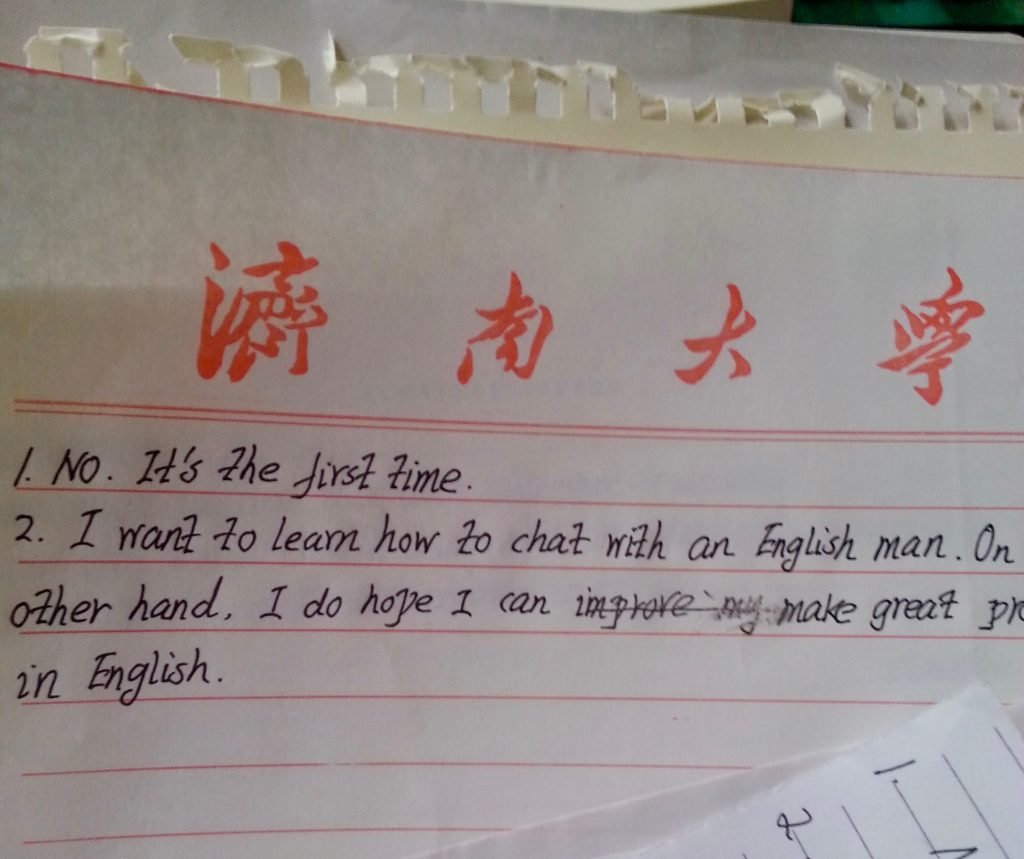 濟南大學
1. NO. It's the first time.
2. I want to learn how to chat with an English man. On
other hand, I do hope I can improve my make great pro
in English.